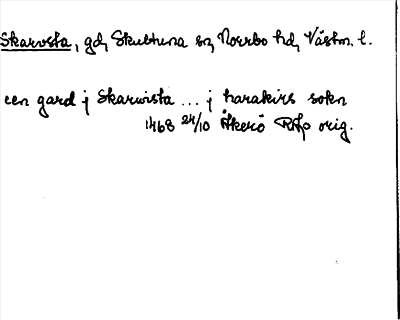 Skarvsta, gd, Skultuna sn, Norrbo hd, Västm. l.
een gard j Skarwista ... j harakirs sokn
1468 24/10 Åkerö RAp orig.